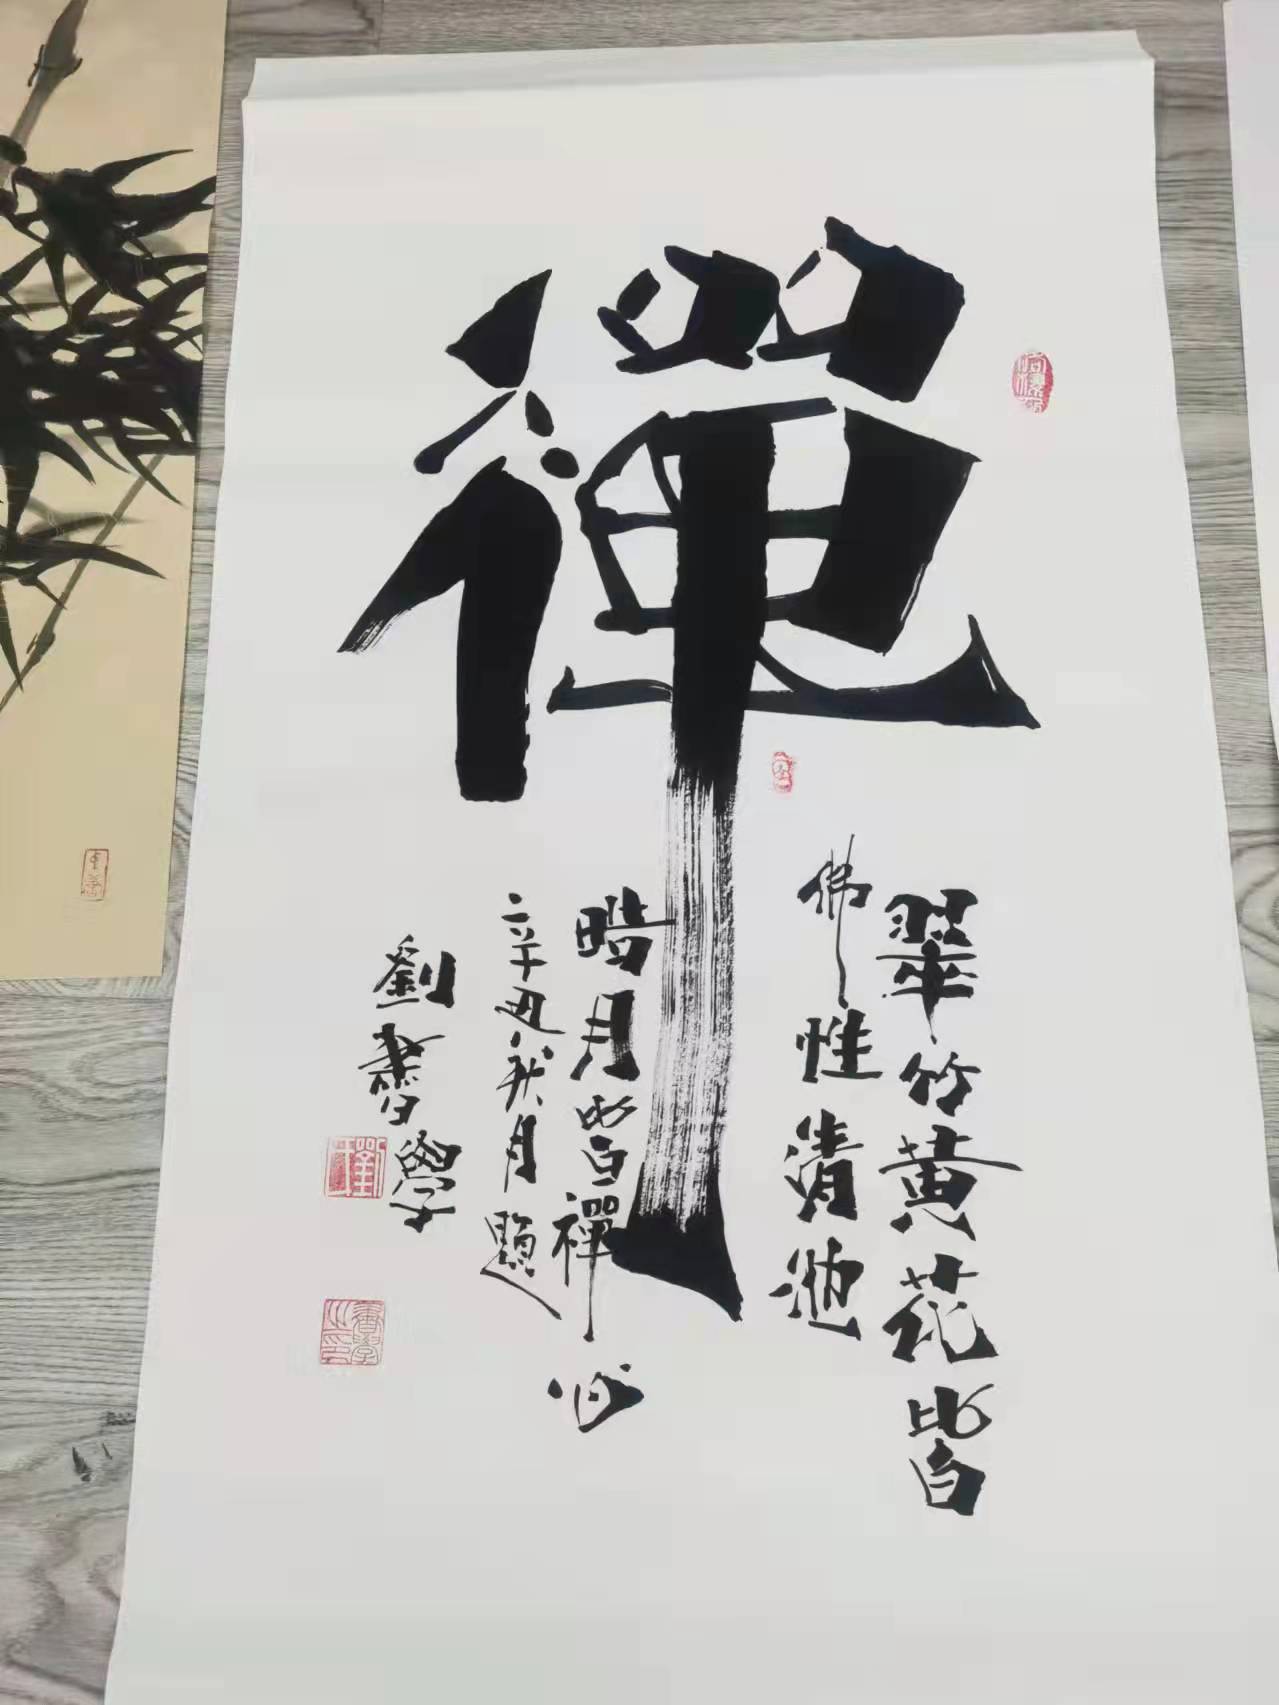 禪
翠竹黄花皆
佛性清池
晧月皆禪心
辛丑秋月題
劉書學